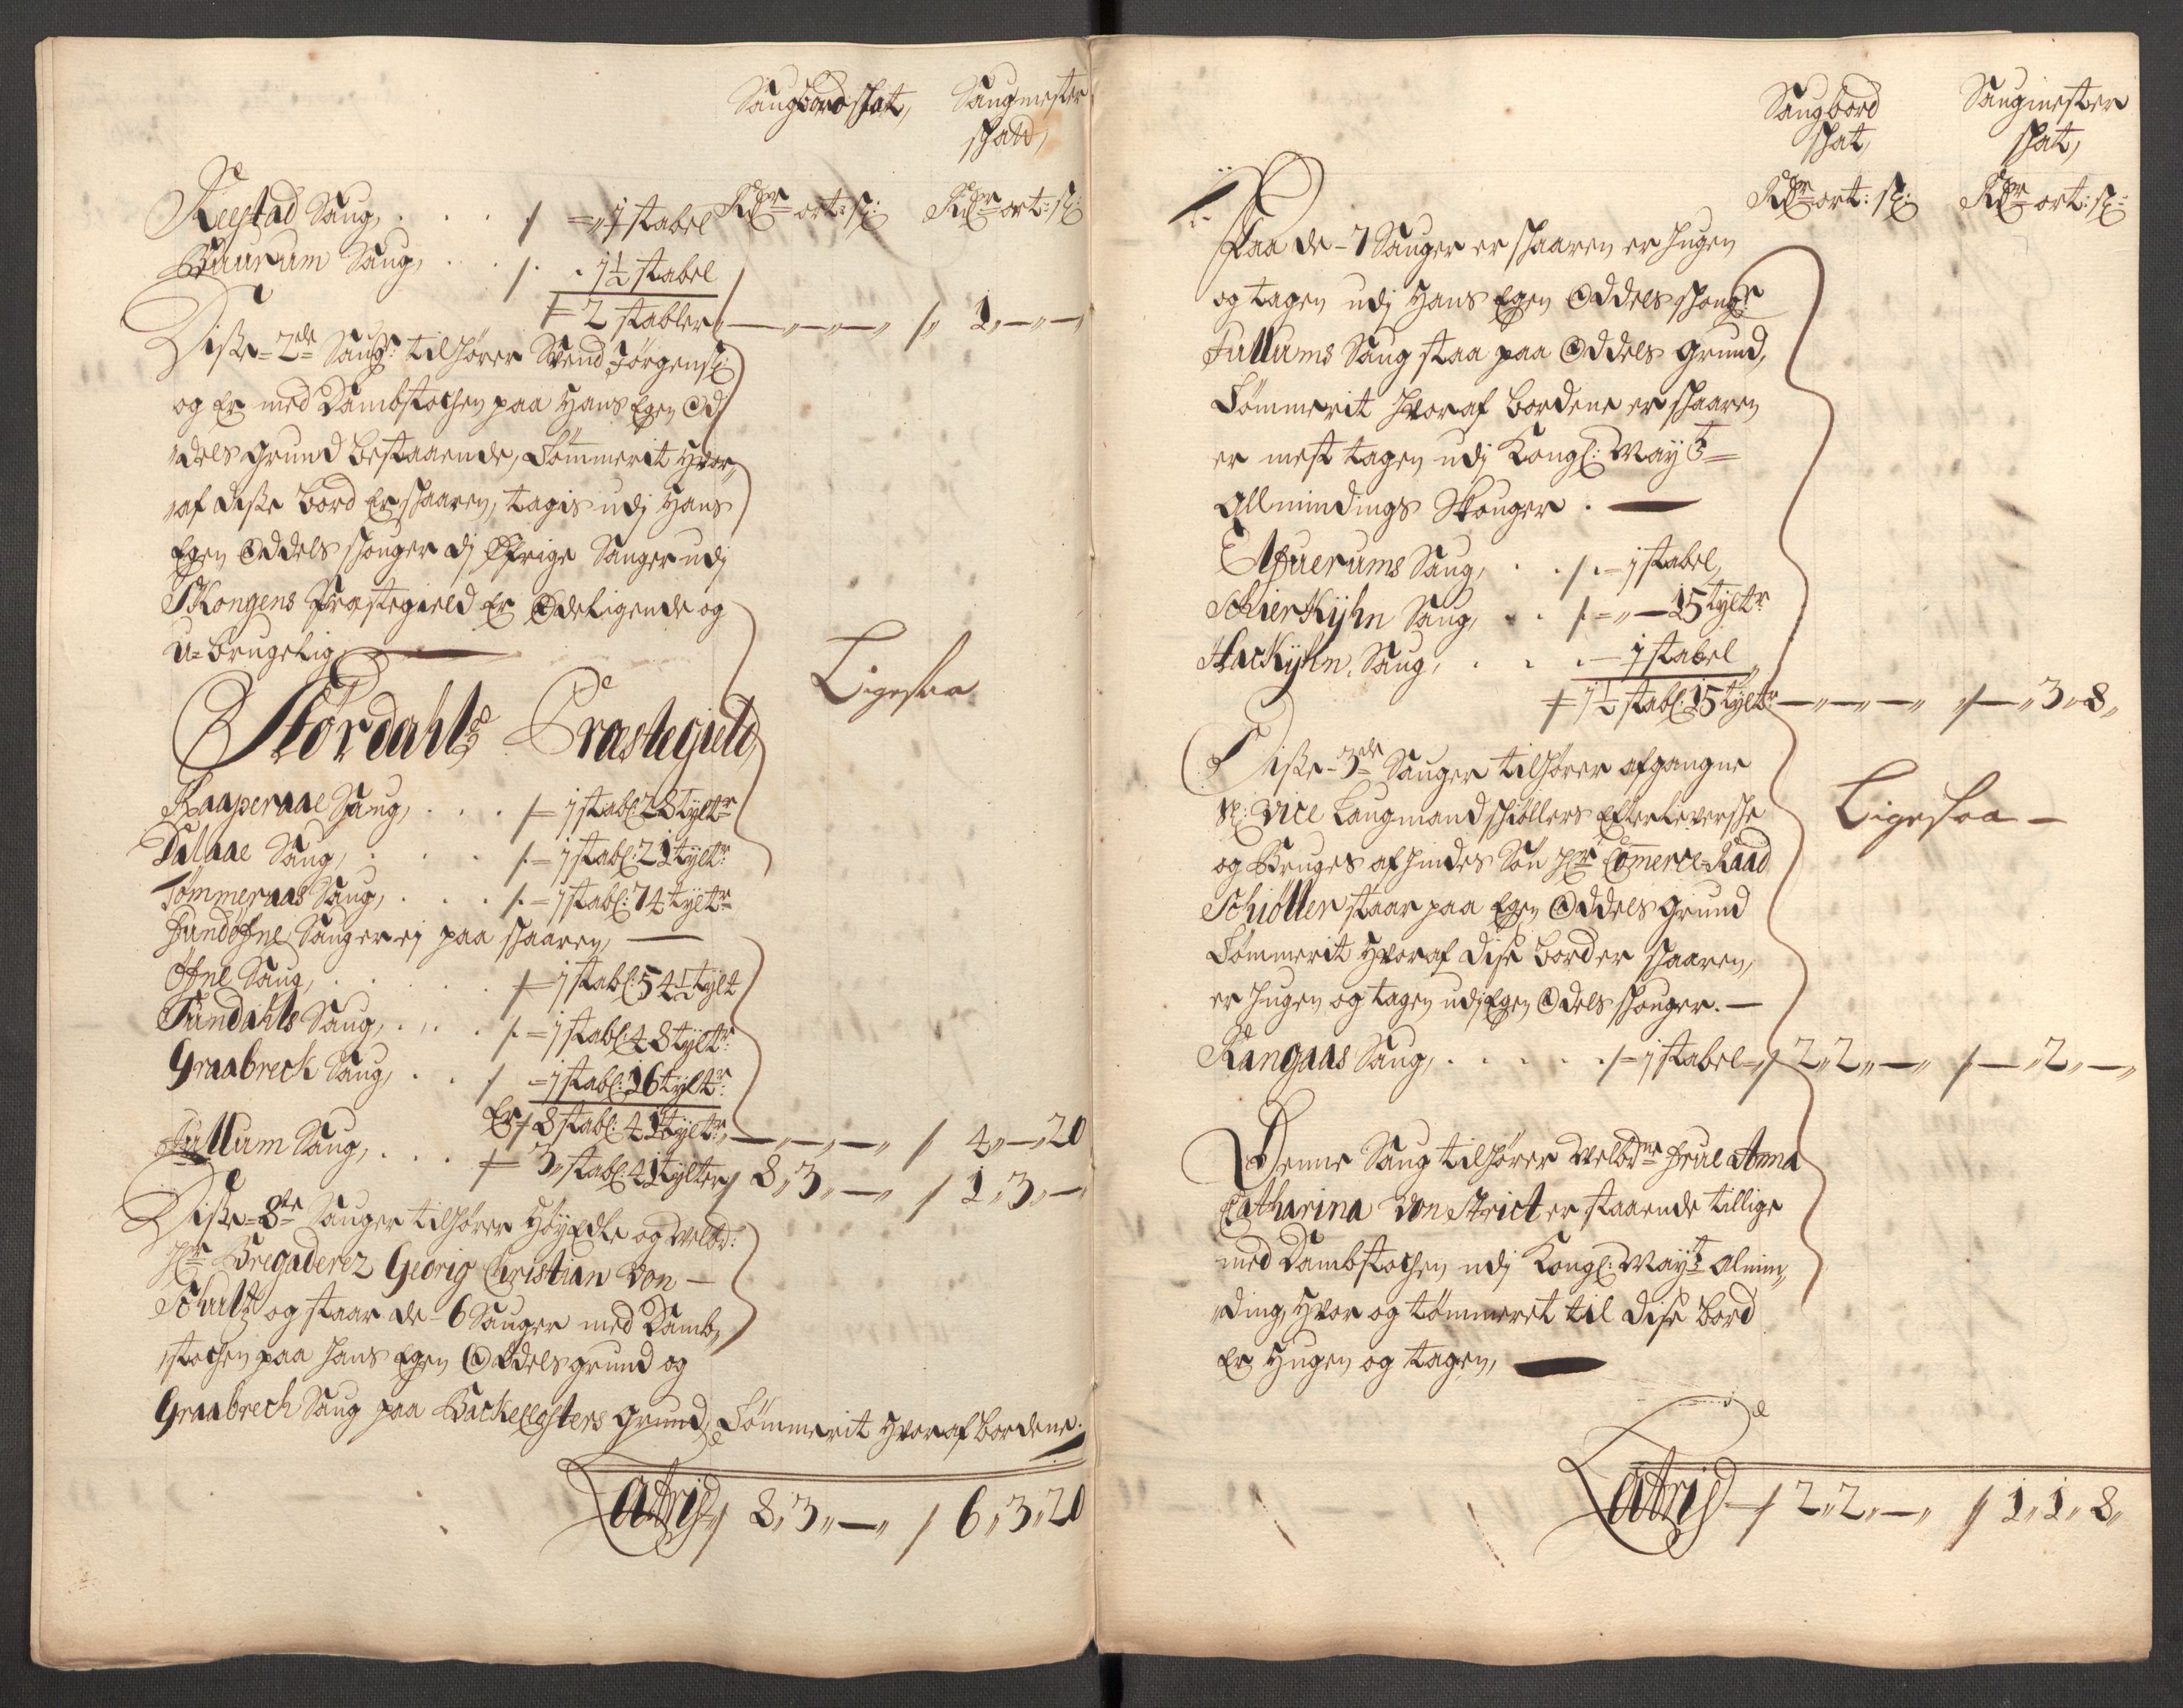 Saugbord skat, Saugmester
skatt,
Rdr ort: s: Rdr ort: s:
Reistad Saug, . . . . /. = „ ½ stabel
Buurum Saug, . . /. . 1½ stabel
/= 2 stabler „ — „ — „ — „ /„ 1 „ — „ — „
Disse 2de Saug: tilhører Svend Jørgens:
og Er med Dambstochen paa Hans Egen Od
„dels grund bestaaende, Tømmerit Hvor„
„af disse bord Er skaaren, tagis udj Hans
Egen Oddels skouger dj Øfrige Sauger udj
Skongens Præstegield Er Ødeligende og
U-brugelig,
Ligesaa
Størdahls Præstegield
Kaaperaae Saug, . . . /= 1 stabl: 28 tylt:
Dalaae Saug, . . . /. = 1 stabl: 21 tylt:
Tømmeraas Saug, . . . /. = 1 stabl: 74 tylt:
Fundøfne Saug er ej paa skaaren,
Øfne Saug, . . . . /= 1 stabl: 54½ tylt
Sundahls Saug, . . . /. = 1 stabl: 48 tylt:
Graabreck Saug, . . / = 1 stabl: 16 tylt:
Er / 8 stabl: 41 tylt: „ — „ — „ — „ / 4 „ — „ 20
Fullum Saug, . . . /= 3 „ stabl: 41 tylter / 8 „ 3 „ — „ / 1 „ 3 „ —
Disse 8te Sauger tilhører HøyEdle og Velbr:
Hr Bregaderez Georig Christian Von
Schultz og staar de 6 Sauger med Damb„
„stochen paa Hans Egen Oddels grund og
Graabrech Saug paa Backe Closters grund, Tømmerit Hvoraf bordene
Latris / 8 „ 3 „ — „ / 6 „ 3 „ 20
Saugbord Saugmester
skat, skat,
Rdr ort: s: Rdr ort: s:
Paa de 7 Sauger er skaaren er Hugen
og tagen udj Hans Egen Oddels skoug:
Fullums Saug staa paa Oddels grund,
Tømmerit Hvoraf bordene er skaaren
er mest tagen udj Kongl: May ts
Allmindings Skouger .
Elfuerums Saug, . . /. = 1 stabel,
SchierKijhn Saug, . . /. = „ — 15 tylt:
HacKijhn Saug, . . . — ½ stabel
/ 1½ stabl: 15 tylt: — „ — „ — „ / — „ 3 „ 8 „
Disse 3de Sauger tilhører afgangne
Sl: Vice Laugmand Schiøllers Efterleversche
og Bruges af Hindes Søn Hr Comerce-Raad
Schiøller staar paa Egen Oddels grund
Tømmerit Hvoraf disse bord er skaaren,
er Hugen og tagen udj Egen Odels skouger. —
Ligesaa —
Kangaas Saug, . . . . . /= 1 stabel = / 2 „ 2 „ — „ / — „ 2 „ — „
Denne Saug tilhører Velbrne Frue Anna
Catharina Von Strict er staaende tillige
med Dambstochen udj Kongl: May ts almin„
„ding, Hvor og tømmeret til disse bord
Er Hugen og tagen,
Latris / 2 „ 2 „ — „ / 1 „ 1 „ 8 „